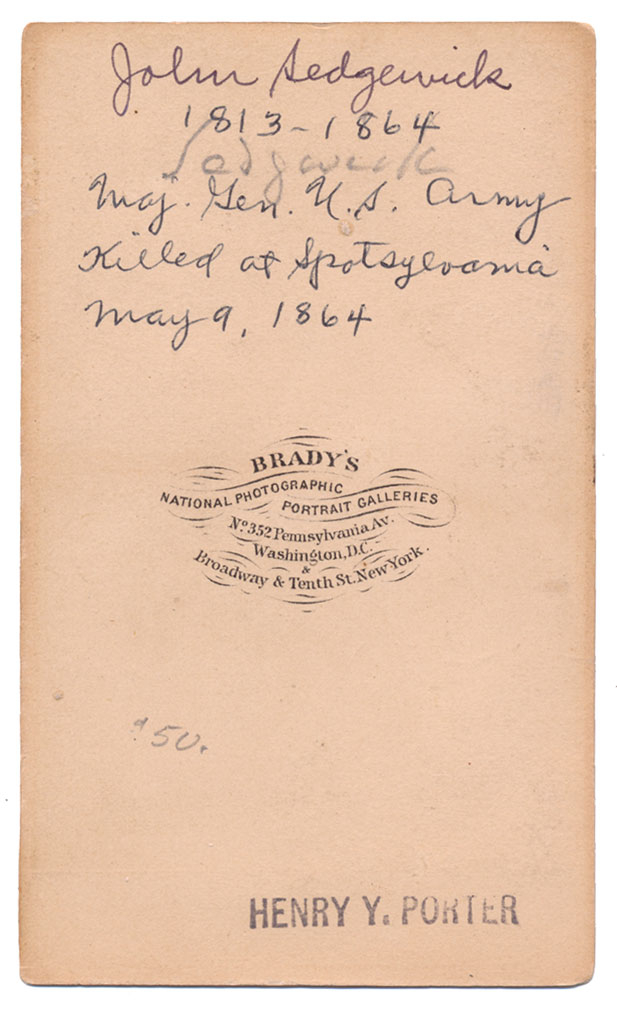 John Sedgewick
1813-1864
Sedgwick
Maj. Gen. U.S. Army
Killed at Spotsylvania
May 9, 1864
BRADY'S
NATIONAL PHOTOGRAPHIC
PORTRAIT GALLERIES
No. 352 Pennsylvania Av.
Washington, D.C.
&
Broadway & Tenth St. New York.
$50.
HENRY Y. PORTER